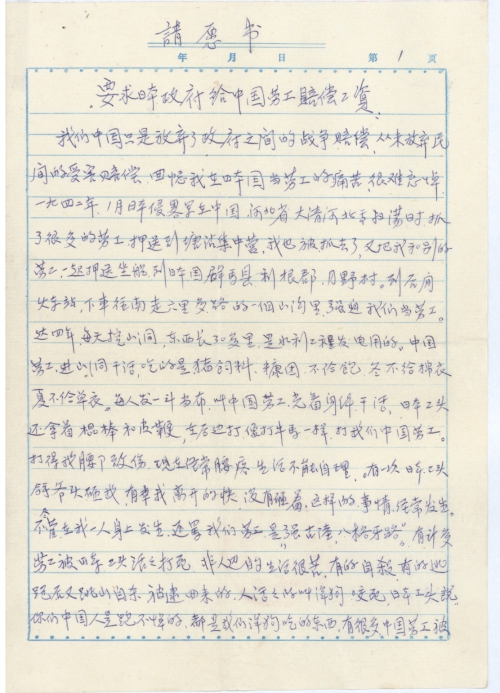 請愿书
年 月 日 第 1 页
要求日本政府给中国劳工赔偿工资:
我们中国只是放弃了政府之间的战争赔偿,从未放弃民
间的受害赔偿。回忆我在日本国当劳工的痛苦,很难忘掉。
一九四二年,1月日本侵畧军在中国,河北省大清河北岸扫荡时,抓
了很多的劳工,押送到塘沽集中营,我也被抓去了,又把我和别的
劳工,一起押送坐船,到日本国群马县利根郡,月野村,到后
火车站,下车往南走六里多路的一个山沟里,强迫我们当劳工。
达四年,每天挖山洞,东西长30多里,是水利工程发电用的。中国
劳工,进山洞干活,吃的是猪饲料,糠团,不给饱,冬不给棉衣
夏不给单衣。每人发一斗当布,叫中国劳工,光着身体干活,日本工头
还拿着棍棒和皮鞭,左右边打像打牛马一样,打我们中国劳工。
打得我腰了致伤,现在经常腰疼,生活不能自理,有一次日本工头
斧头砸我,有幸我离开的快,没有砸着,这样的事情,经常发生。
不管在我一人身上发生,还骂我们劳工是"亡国奴,八格牙路"。有许多
劳工被日本工头活活打死,非人巴的生活很苦,有的自殺,有的逃
跑后又跳山自杀,被逮回来的,人活活的叫洋狗咬死,日本工头说,
你们中国人是跑不掉的,都是我们洋狗吃的东西,有很多中国劳工被